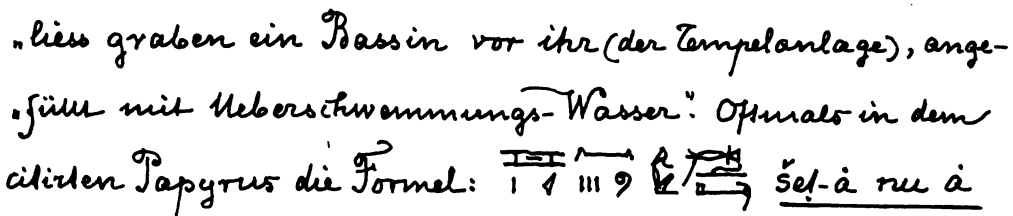 „liess graben ein Bassin vor ihr (der Tempelanlage), ange-
„füllt mit Ueberschwemmungs-Wasser“. Oftmals in dem
citirten Papyrus die Formel: šeṭ-ȧ nu ȧ